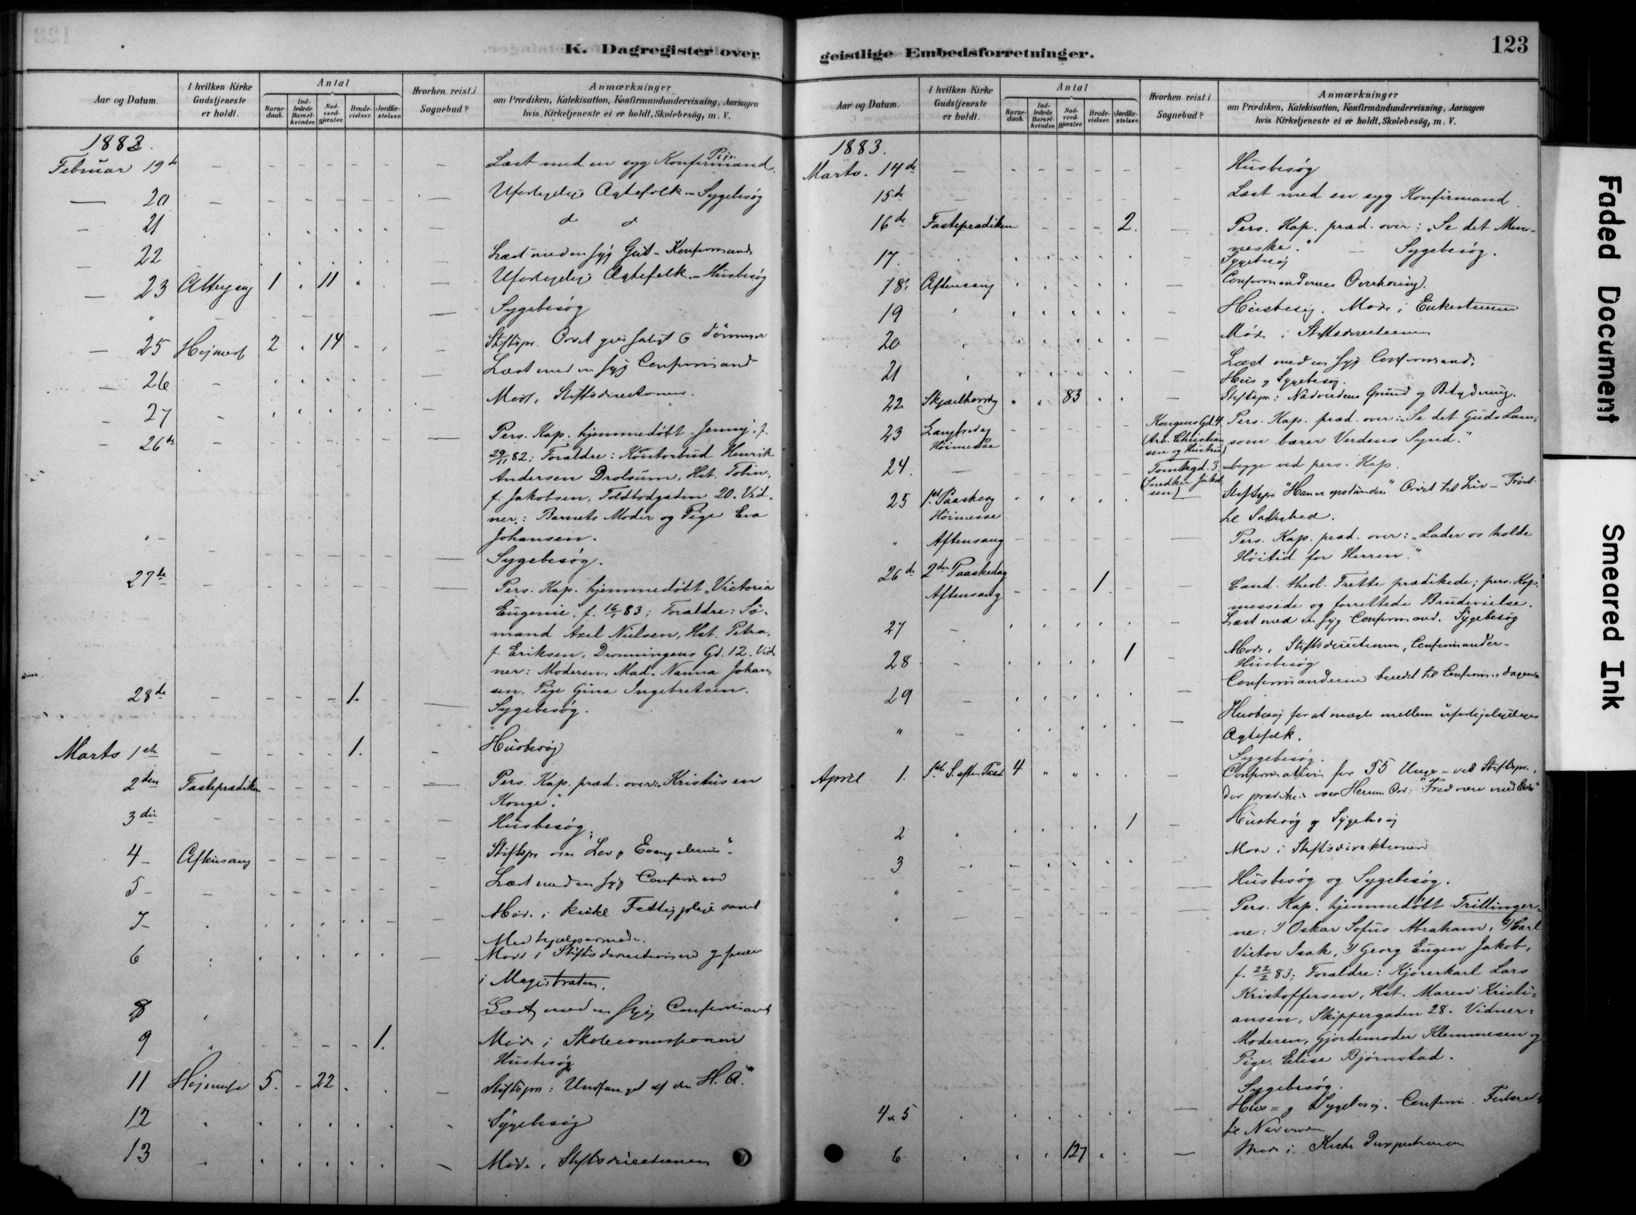 K. Dagregister over
Aar og Datum.
I hvilken Kirke Gudstjeneste er holdt.
Antal
Barnedaab.
Indledede Barselkvinder.
Nadverdgjester.
Brudevielser.
Jordfæstelser.
Hvorhen reist i Sognebud?
Anmærkninger
om Prædiken, Katekisation, Konfirmandundervisning, Aarsagen
hvis Kirketjeneste ei er holdt, Skolebesøg, m. V.
1883.
Februar 19de Læst med en syg Konfirmand
20 Uforligelige Ægtefolk - Sygebesøg
21
22 Læst med en syg Konfirmand
23 Altergang 1 11 Uforligelige Ægtefolk - Husbesøg
Sygebesøg
25 Høimesse 2 14 Stiftspr.
26 Læst med en syg Confirmand
27 Møde i Stiftsdirectionen.
26de Pers. Kap. hjemmedøbt Jenny, f.
29/11 82; Forældre: Kontorbud Henrik
Andersen Drolsum, Hst.
f. Jakobsen, Toldbodgaden 20. Vid-
ner: Barnets Moder og Pige Eva
Johansen.
Sygebesøg.
27de Pers. Kap. hjemmedøbt Victoria
Eugenie, f. 83; Forældre: Sø-
mand Axel Nielsen, Hst. Petra,
f. Eriksen, Dronningens Gd. 12. Vid-
ner: Moderen, Mad. Nanna Johan-
sen, Pige Gina Ingebretsen.
28de 1. Sygebesøg.
Marts 1ste 1. Husbesøg
2den Fasteprædiken Pers. Kap. præd. over: Kristus en
Konge.
3die Husbesøg.
4 Aftensang Stiftspr. over
5 Læst med en syg Confirmand
Møde i
6 Møde i Stiftsdirectionen
i Magistraten.
8 Læst med en syg Confirmand
9 1. Møde i Skolecommissionen
Husbesøg
11 Høimesse 5. 22 Stiftspr.: Undfanget af den H. A.
12 Sygebesøg
13 Møde i Stiftsdirectionen
geistlige Embedsforretninger.
123
Aar og Datum.
I hvilken Kirke Gudstjeneste er holdt.
Antal
Barnedaab.
Indledede Barselkvinder.
Nadverdgjester.
Brudevielser.
Jordfæstelser.
Hvorhen reist i Sognebud?
Anmærkninger
om Prædiken, Katekisation, Konfirmandundervisning, Aarsagen
hvis Kirketjeneste ei er holdt, Skolebesøg, m. V.
1883.
Marts. 14de Husbesøg
15de Læst med en syg Konfirmand.
16de Fasteprædiken 2. Pers. Kap. præd. over: "Se det Men-
neske." Sygebesøg.
17. Sygebesøg
18. Aftensang Confirmandernes Overhøring.
19 Husbesøg. Møde i Enkestuen
20 Møde i Stiftsdirectionen
21 Læst med en syg Confirmand.
Hus og Sygebesøg.
22 Skjærthorsdag 83 Stiftspr.: Nadverdens Grund og Betydning.
23 Langfredag Høimesse Kongens Gd. 4. Arb. Christiansen og Hustru Pers. Kap. præd. over: "Se det Guds Lam,
som bærer Verdens Synd."
24. Tomtegd. 3. begge ved pers. Kap.
25 1ste Paaskedag Høimesse Stiftspr. "Han er opstanden"
Aftensang Pers. Kap. præd. over: "Lader os holde
Høitid for Herren."
26de 2den Paaskedag Aftensang 1 Cand. theol. Frette prædikede; pers. Kap.
messede og forrettede Brudevielse.
27 Læst med en syg Confirmand. Sygebesøg
28 1 Møde i Stiftsdirectionen, Confirmander-
Husbesøg
29 Confirmanderne beredet til
Husbesøg for at mægle mellem uforligelige
Ægtefolk.
Sygebesøg.
April 1. 1ste S. efter Paaske 4 Confirmation for 75 Unge - ved Stiftspr.,
der prædikede over Herrens Ord: "Fred være med Eder"
2 1 Husbesøg og Sygebesøg
3 Møde i Stiftsdirektionen
Husbesøg og Sygebesøg.
Pers. Kap. hjemmedøbt Trillinger-
ne: 1) Oskar Sofus Abraham, 2) Carl
Victor Isak, 3) Georg Eugen Jakob,
f. 22/2 83; Forældre: Kjørerkarl Lars
Kristoffersen, Hst. Maren Kristi-
ansen, Skippergaden 28. Vidner:
Moderen, Gjordemoder Klemmesen og
Pige Elise Bjørnstad.
Sygebesøg.
4 & 5 Hus- og Sygebesøg.
6 127 Møde i
Faded Document
Smeared Ink